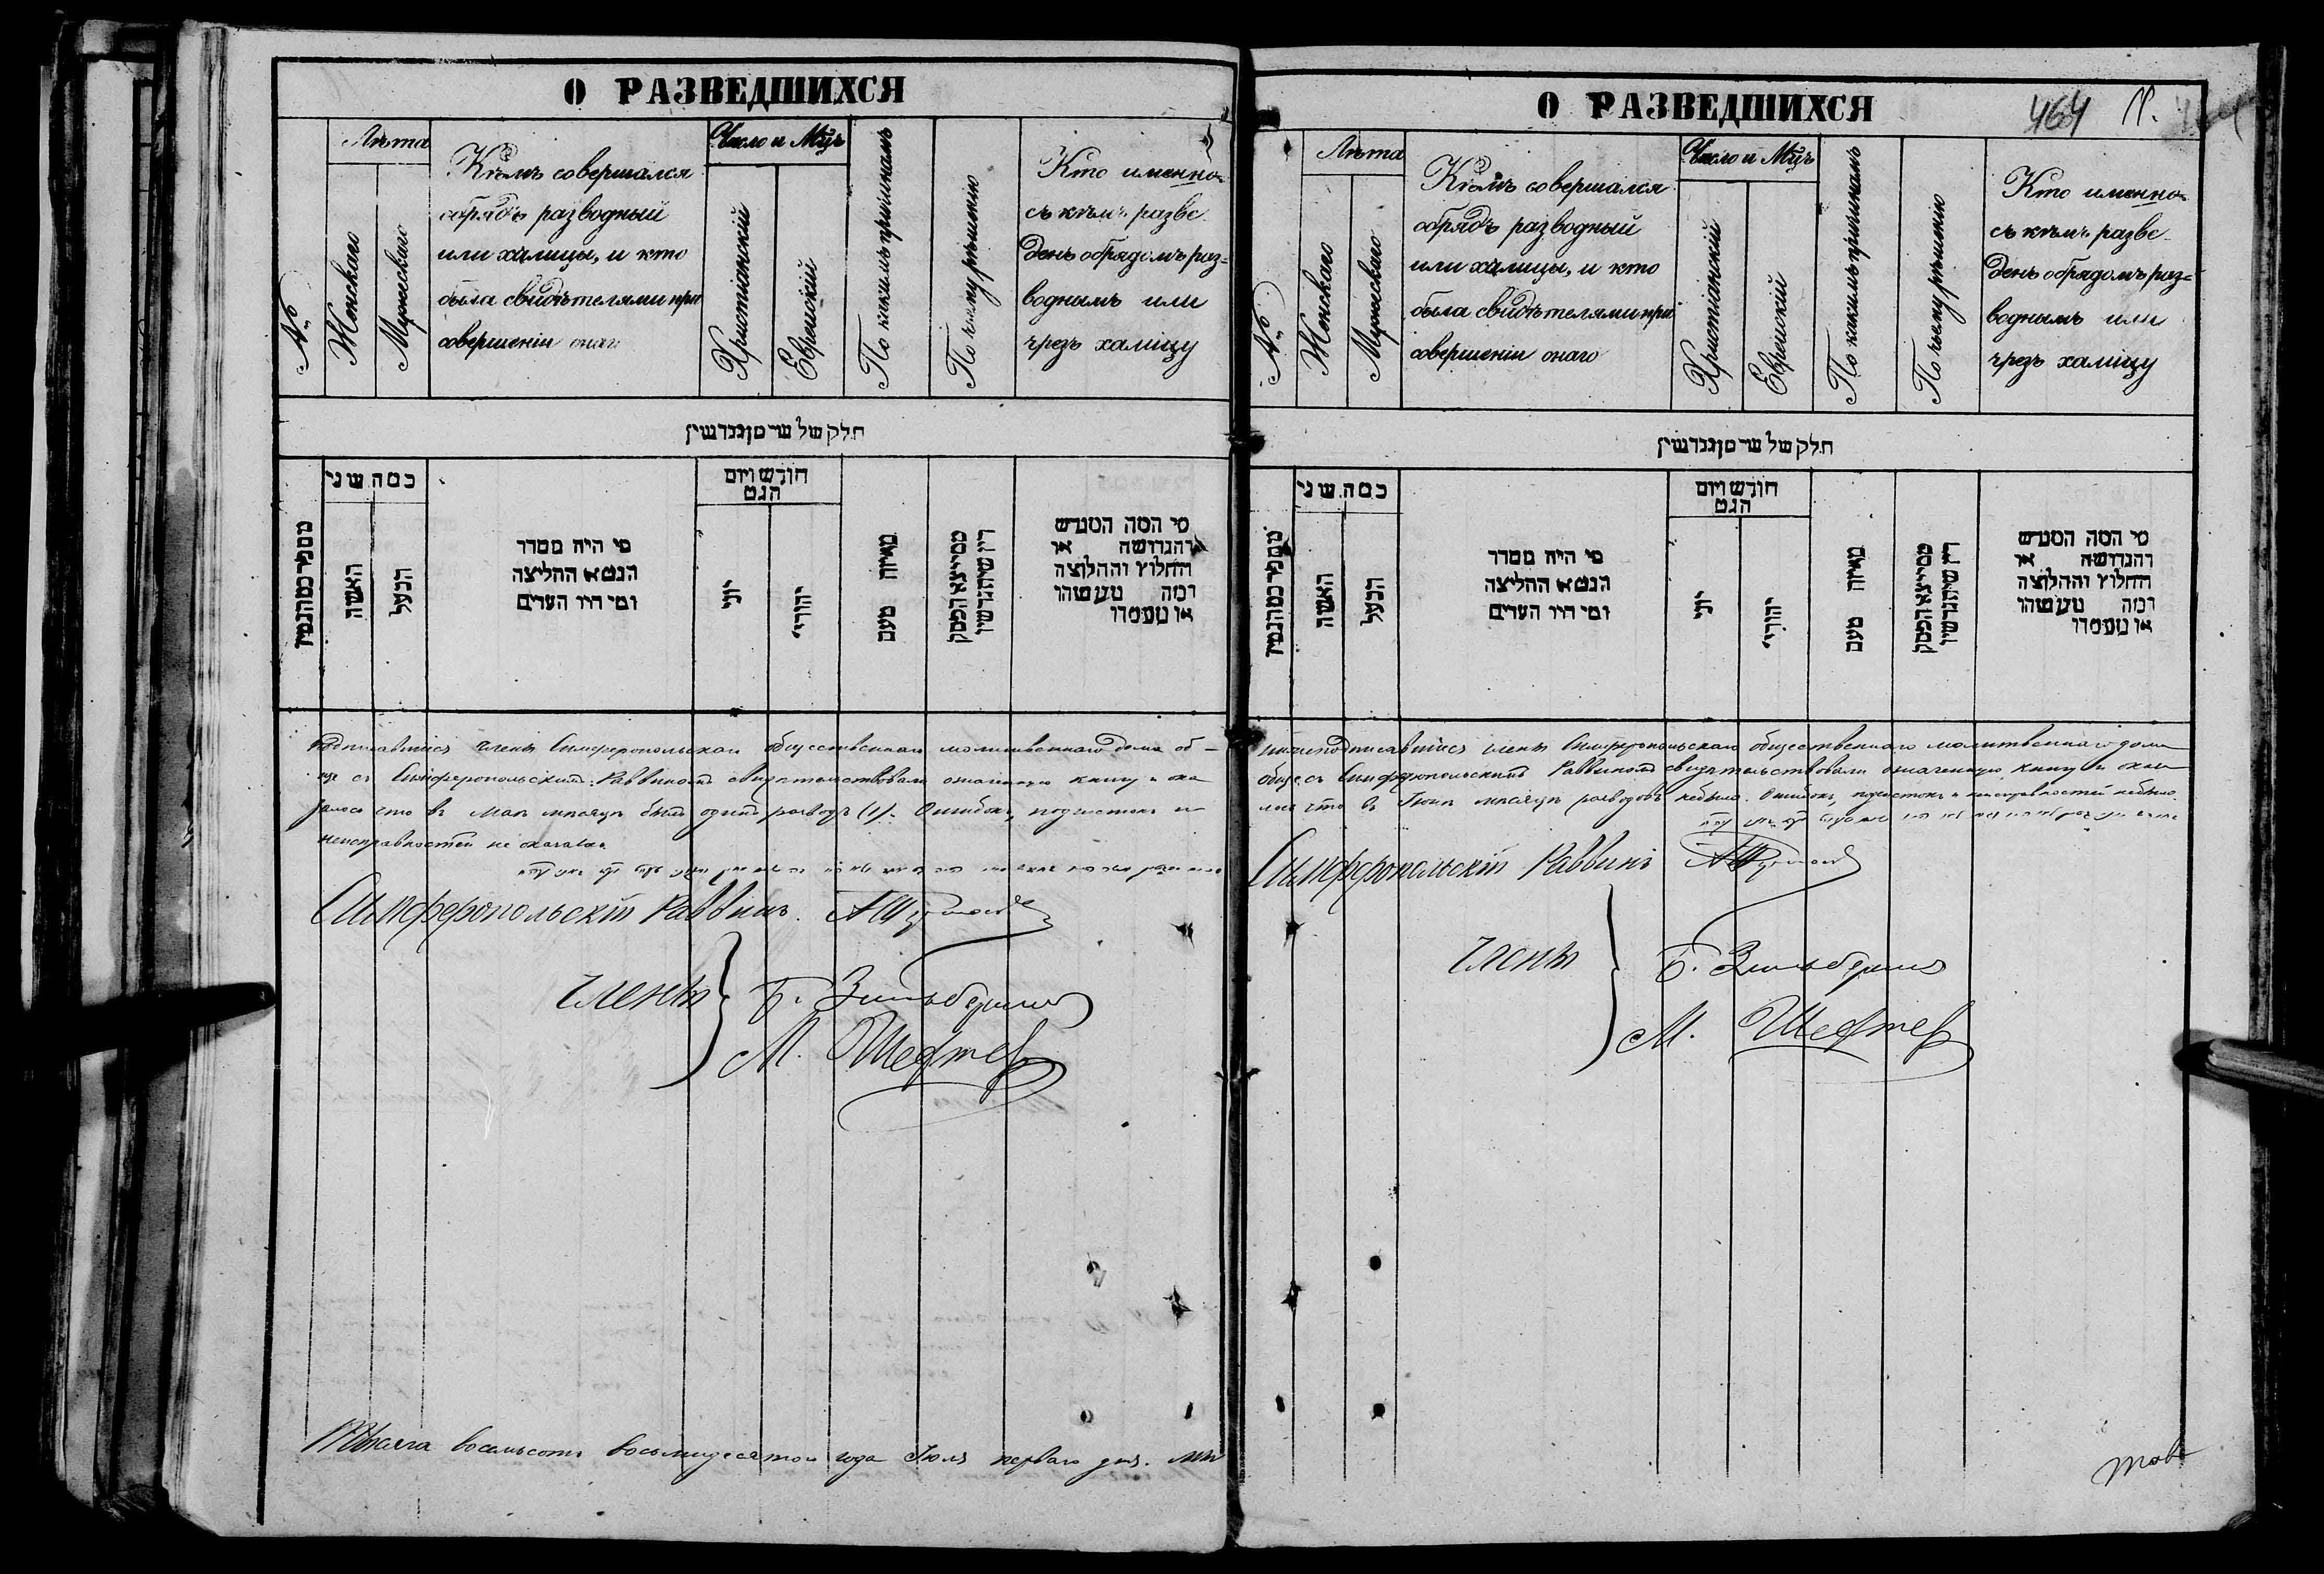 О РАЗВЕДШИХСЯ
№
Лѣта
Женскаго
Мужескаго
Кѣмъ совершался
обрядъ разводный
или халицы, и кто
была свидѣтелями при
совершеніи онаго
Число и Мцъ
Христіанскій
Еврейскій
По какимъ причинамъ
По чьему рѣшенію
Кто именно
съ кѣмъ разве-
денъ обрядомъ раз-
воднымъ или
чрезъ халицу
חלק של
כמה שני
האשה
הבעל
מי היה מסדר
הגט או החליצה
ומי היו העדים
חודש ויום
הגט
יוני
יהודי
מאיזה טעם
מי המה המגרש
והגרושה או
החלוץ והחלוצה
ומה מעשהו
או מעמדו
подписавшіеся члены Симферопольскаго общественнаго молитвеннаго дома об-
ще съ Симферопольскимъ Раввиномъ свидѣтельствовали означенную книгу и ока
залось что въ Маѣ мѣсяцѣ былъ одинъ разводъ (1). Ошибокъ, подчистокъ и
неисправностей не оказалось
Симферопольскій Раввинъ
Члены
Б. Зильберман
М. Шефтер
Тысяча восемьсотъ восьмидесятаго года Іюля перваго дня. мы
О РАЗВЕДШИХСЯ
464 11.
№
Лѣта
Женскаго
Мужескаго
Кѣмъ совершался
обрядъ разводный
или халицы, и кто
была свидѣтелями при
совершеніи онаго
Число и Мцъ
Христіанскій
Еврейскій
По какимъ причинамъ
По чьему рѣшенію
Кто именно
съ кѣмъ разве-
денъ обрядомъ раз-
воднымъ или
чрезъ халицу
חלק של
כמה שני
האשה
הבעל
מי היה מסדר
הגט או החליצה
ומי היו העדים
חודש ויום
הגט
יוני
יהודי
מאיזה טעם
מי המה המגרש
והגרושה או
החלוץ והחלוצה
ומה מעשהו
או מעמדו
нижеподписавшіеся члены Симферопольскаго общественнаго молитвеннаго дома
обще съ Симферопольскимъ Раввиномъ свидѣтельствовали означенную книгу и оказа
лось что въ Іюнѣ мѣсяцѣ разводовъ небыло. Ошибокъ, подчистокъ и неисправностей небыло.
Симферопольскій Раввинъ
Члены
Б. Зильберман
М. Шефтер